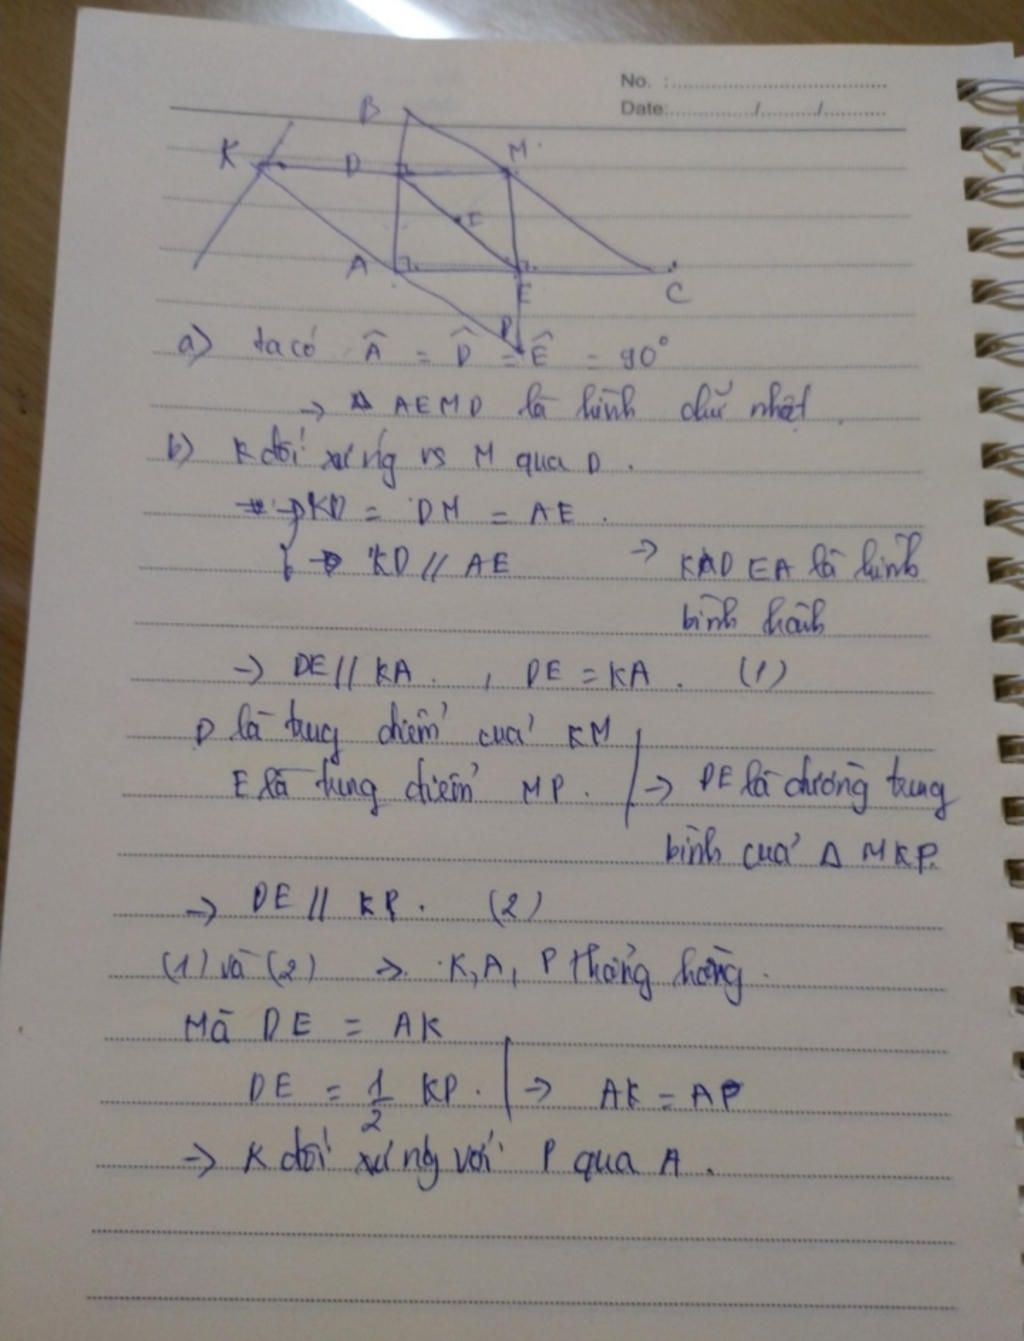 No. :
Date: / /
B
K D M
I
A E C
P
a) ta có Â = D̂ = Ê = 90°
→ AEMD là hình chữ nhật.
b) K đối xứng vs M qua D.
→ KD = DM = AE.
→ KD // AE → KDEA là hình
bình hành
→ DE // KA. , DE = KA. (1)
D là trung điểm của KM
E là trung điểm MP. → DE là đường trung
bình của Δ MKP.
→ DE // KP. (2)
(1) và (2) → K, A, P thẳng hàng.
Mà DE = AK
DE = 1/2 KP. → AK = AP
→ K đối xứng với P qua A.